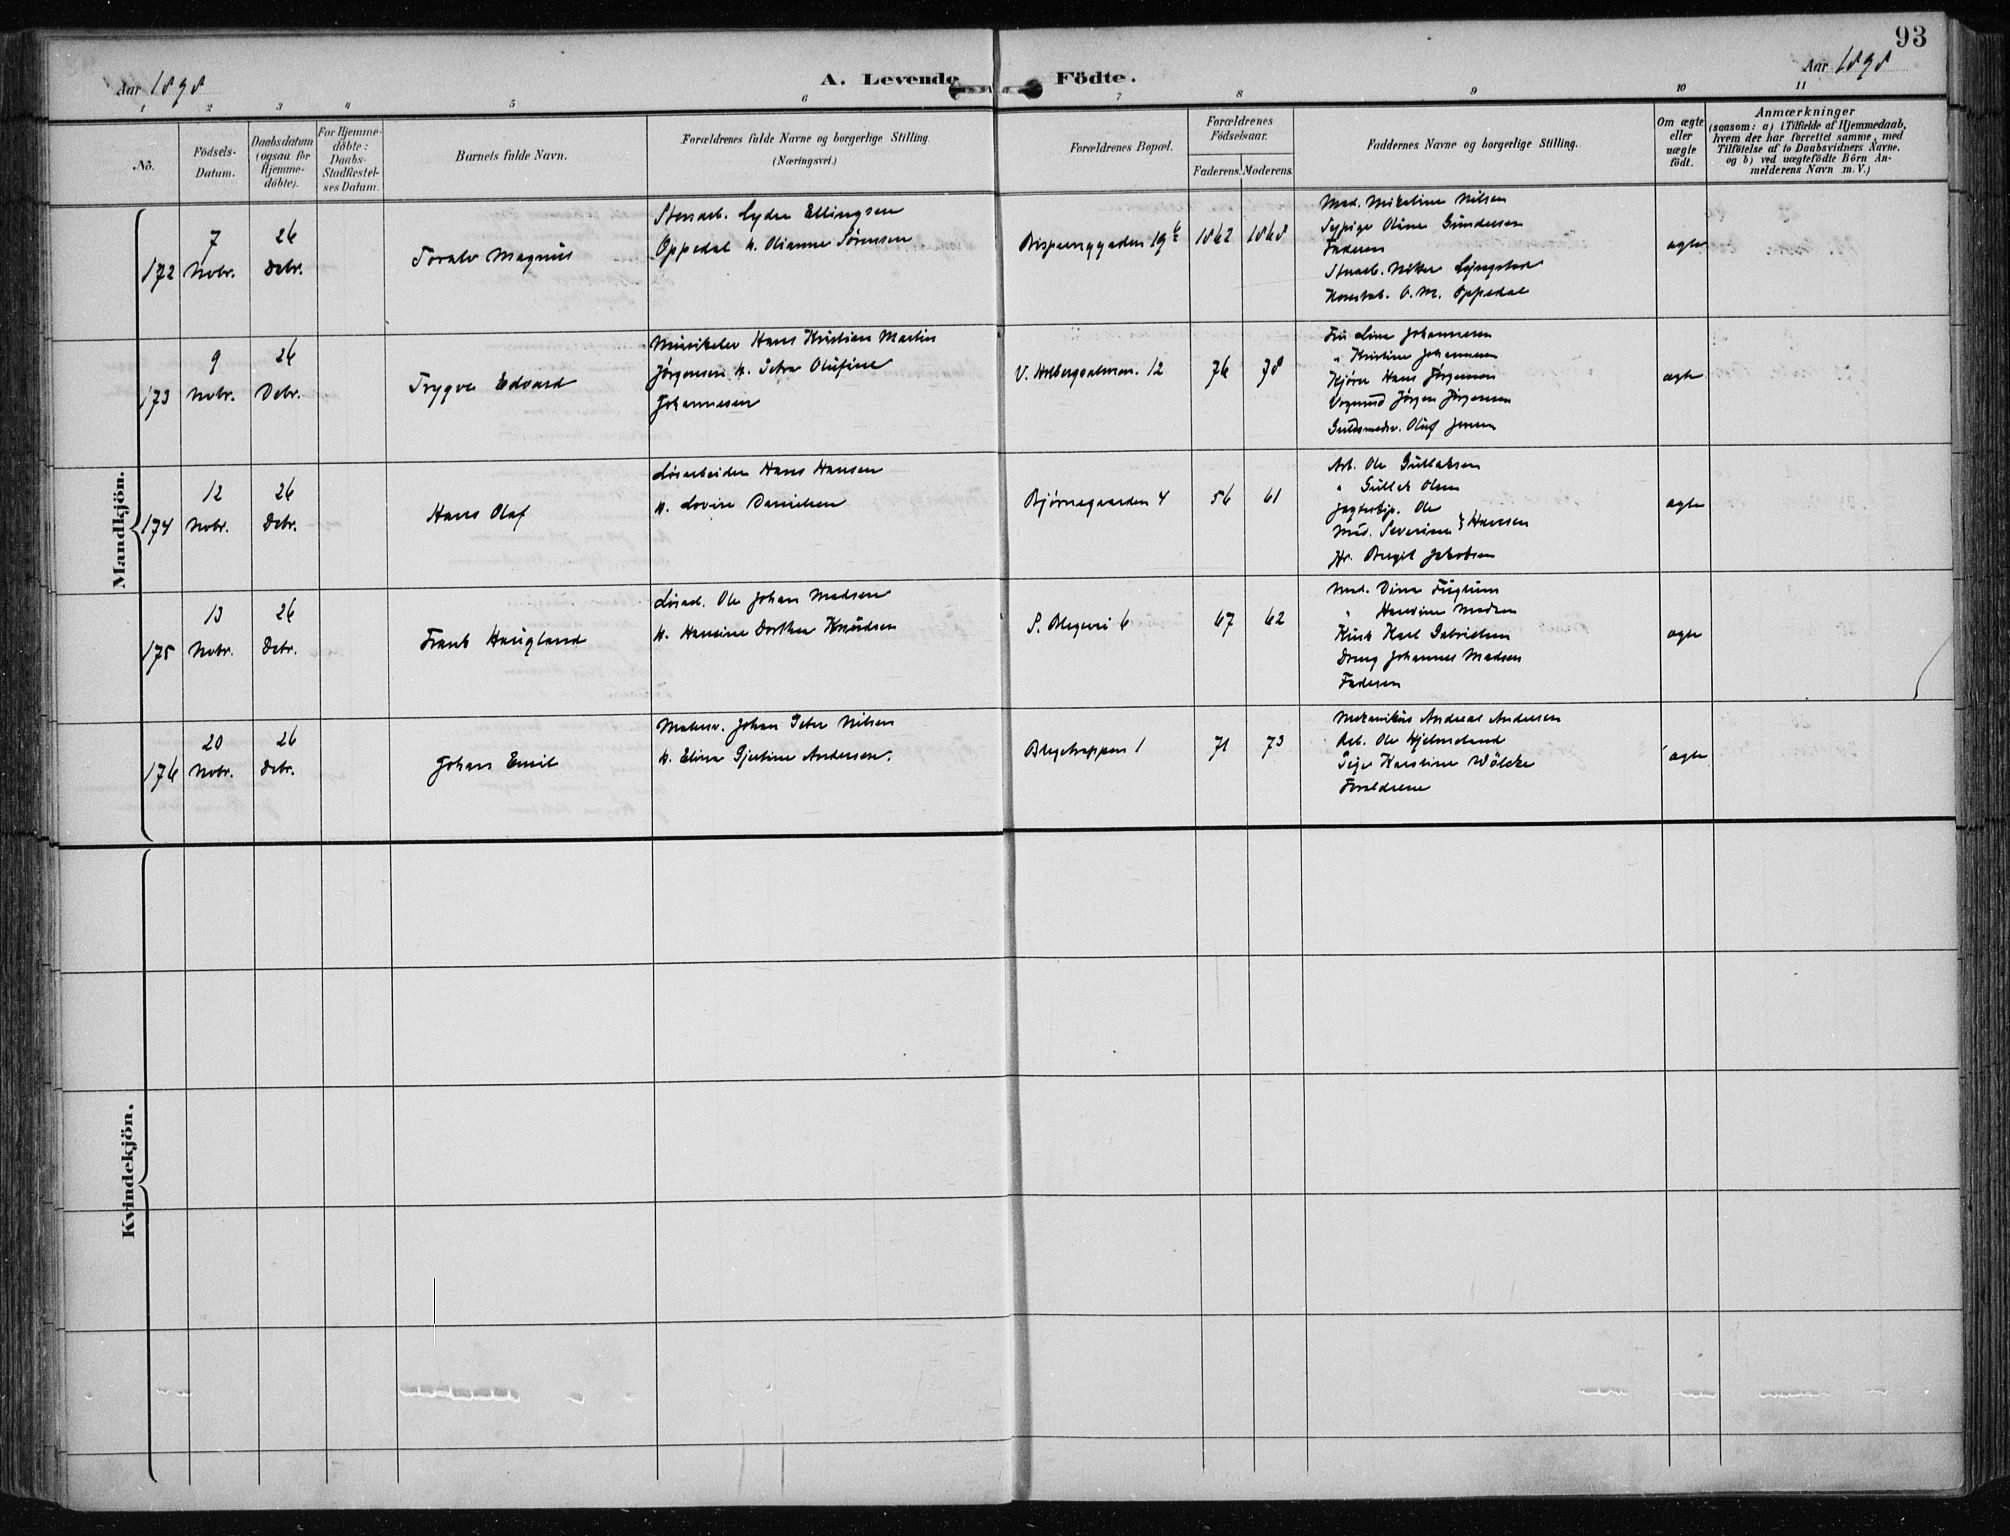 93
Aar 1898
A. Levende Födte.
Aar 1898
1 2 3 4 5 6 7 8 9 10 11
No.
Födsels-Datum.
Daabsdatum (ogsaa for Hjemme-döbte).
For Hjemme-döbte: Daabs-Stadfæstel-ses Datum.
Barnets fulde Navn.
Forældrenes fulde Navne og borgerlige Stilling. (Næringsvei.)
Forældrenes Bopæl.
Forældrenes Födselsaar.
Faderens. Moderens.
Faddernes Navne og borgerlige Stilling.
Om ægte eller uægte födt.
Anmærkninger
(saasom: a) i Tilfælde af Hjemmedaab, hvem der har forrettet samme, med Tilföielse af to Daabsvidners Navne, og b) ved uægtefödte Börn An-melderens Navn m. V.)
Mandkjön.
172
7 Novbr.
26 Debr.
Toralv Magnus
Stenarb. Lyder Ellingsen
Oppedal h. Olianne Sørensen
Bispenggaden 19 b
1862 1868
Mad. Mikeline Nilsen
Sypige Oline Gundersen
Faderen
Oppedal
ægte
173
9 Novbr.
26 Debr.
Trygve Edvard
Musikelev Hans Kristian Martin
Jørgensen h. Petra Olufine
Johannesen
V. Holbergsalmen. 12
76 78
Fru Line Johannesen
" Kristine Johannesen
Hans Jørgensen
Vognmd Jørgen Jørgensen
Guldsmedsv. Oluf Jensen
ægte
174
12 Novbr.
26 Debr.
Hans Olaf
Løsarbeider Hans Hansen
h. Lovise Danielsen
Bjørnegaarden 4
56 61
Arb. Ole Gullaksen
" Gullak Olsen
Ole
Mad. Severine } Hansen
Jakobsen
ægte
175
13 Novbr.
26 Debr.
Frank Haugland
Løsarb. Ole Johan Madsen
h. Hansine Dorthea Knudsen
S. Blegevei 6
67 62
Mad. Dina Fuglum
" Hansine Madsen
Kusk Karl Gabrielsen
Dreng Johannes Madsen
Faderen
ægte
176
20 Novbr.
26 Debr.
Johan Emil
Malersv. Johan Peter Nilsen
h. Elina Gjertine Andersen.
Blegetrappen 1
71 73
Mekanikus Andreas Andersen
Arb. Ole Hjelmeland
Pige Karstine Wölcke
Forældrene
ægte
Kvindekjön.